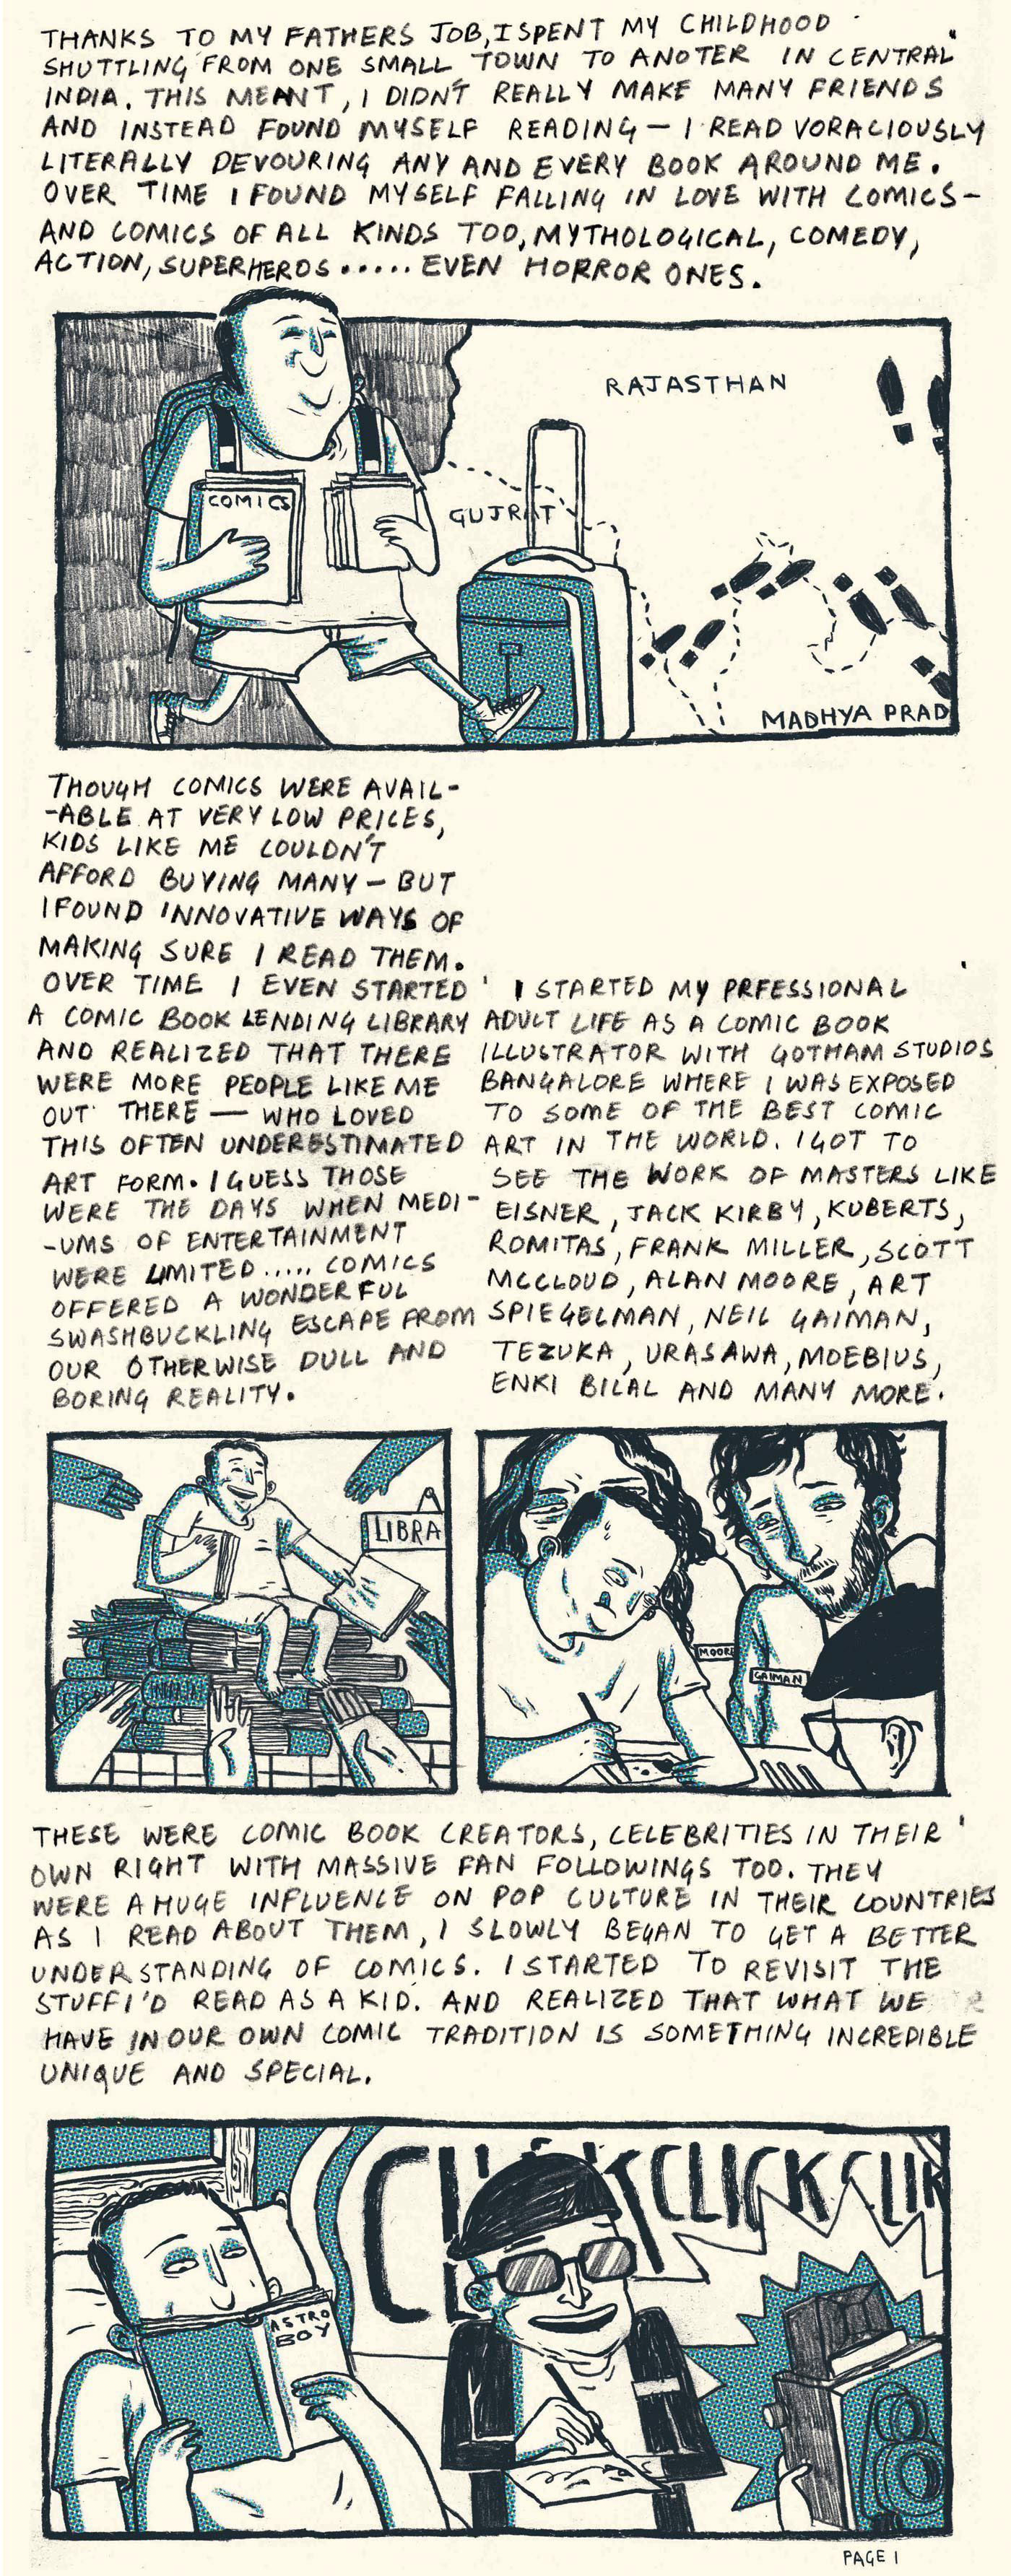 THANKS TO MY FATHERS JOB, I SPENT MY CHILDHOOD
SHUTTLING FROM ONE SMALL TOWN TO ANOTER IN CENTRAL
INDIA. THIS MEANT, I DIDN'T REALLY MAKE MANY FRIENDS
AND INSTEAD FOUND MYSELF READING — I READ VORACIOUSLY
LITERALLY DEVOURING ANY AND EVERY BOOK AROUND ME.
OVER TIME I FOUND MYSELF FALLING IN LOVE WITH COMICS-
AND COMICS OF ALL KINDS TOO, MYTHOLOGICAL, COMEDY,
ACTION, SUPERHEROS..... EVEN HORROR ONES.
RAJASTHAN
COMICS
GUJRAT
MADHYA PRAD
THOUGH COMICS WERE AVAIL-
-ABLE AT VERY LOW PRICES,
KIDS LIKE ME COULDN'T
AFFORD BUYING MANY — BUT
I FOUND INNOVATIVE WAYS OF
MAKING SURE I READ THEM.
OVER TIME I EVEN STARTED
A COMIC BOOK LENDING LIBRARY
AND REALIZED THAT THERE
WERE MORE PEOPLE LIKE ME
OUT THERE — WHO LOVED
THIS OFTEN UNDERESTIMATED
ART FORM. I GUESS THOSE
WERE THE DAYS WHEN MEDI-
-UMS OF ENTERTAINMENT
WERE LIMITED..... COMICS
OFFERED A WONDERFUL
SWASHBUCKLING ESCAPE FROM
OUR OTHERWISE DULL AND
BORING REALITY.
I STARTED MY PRFESSIONAL
ADULT LIFE AS A COMIC BOOK
ILLUSTRATOR WITH GOTHAM STUDIOS
BANGALORE WHERE I WAS EXPOSED
TO SOME OF THE BEST COMIC
ART IN THE WORLD. I GOT TO
SEE THE WORK OF MASTERS LIKE
EISNER, JACK KIRBY, KUBERTS,
ROMITAS, FRANK MILLER, SCOTT
MCCLOUD, ALAN MOORE, ART
SPIEGELMAN, NEIL GAIMAN,
TEZUKA, URASAWA, MOEBIUS,
ENKI BILAL AND MANY MORE.
LIBRA
MOORE
GAIMAN
THESE WERE COMIC BOOK CREATORS, CELEBRITIES IN THEIR
OWN RIGHT WITH MASSIVE FAN FOLLOWINGS TOO. THEY
WERE A HUGE INFLUENCE ON POP CULTURE IN THEIR COUNTRIES
AS I READ ABOUT THEM, I SLOWLY BEGAN TO GET A BETTER
UNDERSTANDING OF COMICS. I STARTED TO REVISIT THE
STUFF I'D READ AS A KID. AND REALIZED THAT WHAT WE
HAVE IN OUR OWN COMIC TRADITION IS SOMETHING INCREDIBLE
UNIQUE AND SPECIAL.
CLICK CLICK CLIK
ASTRO
BOY
PAGE 1